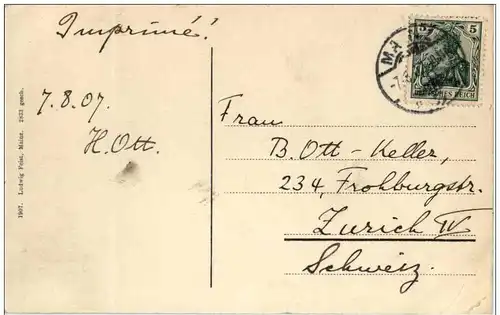 Imprimé!
7.8.07.
H. Ott.
1907. Ludwig Feist, Mainz. 2853 gesch.
5 5
MA
Frau
B. Ott-Keller,
234, Frohburgstr.
Zurich IV
Schweiz.